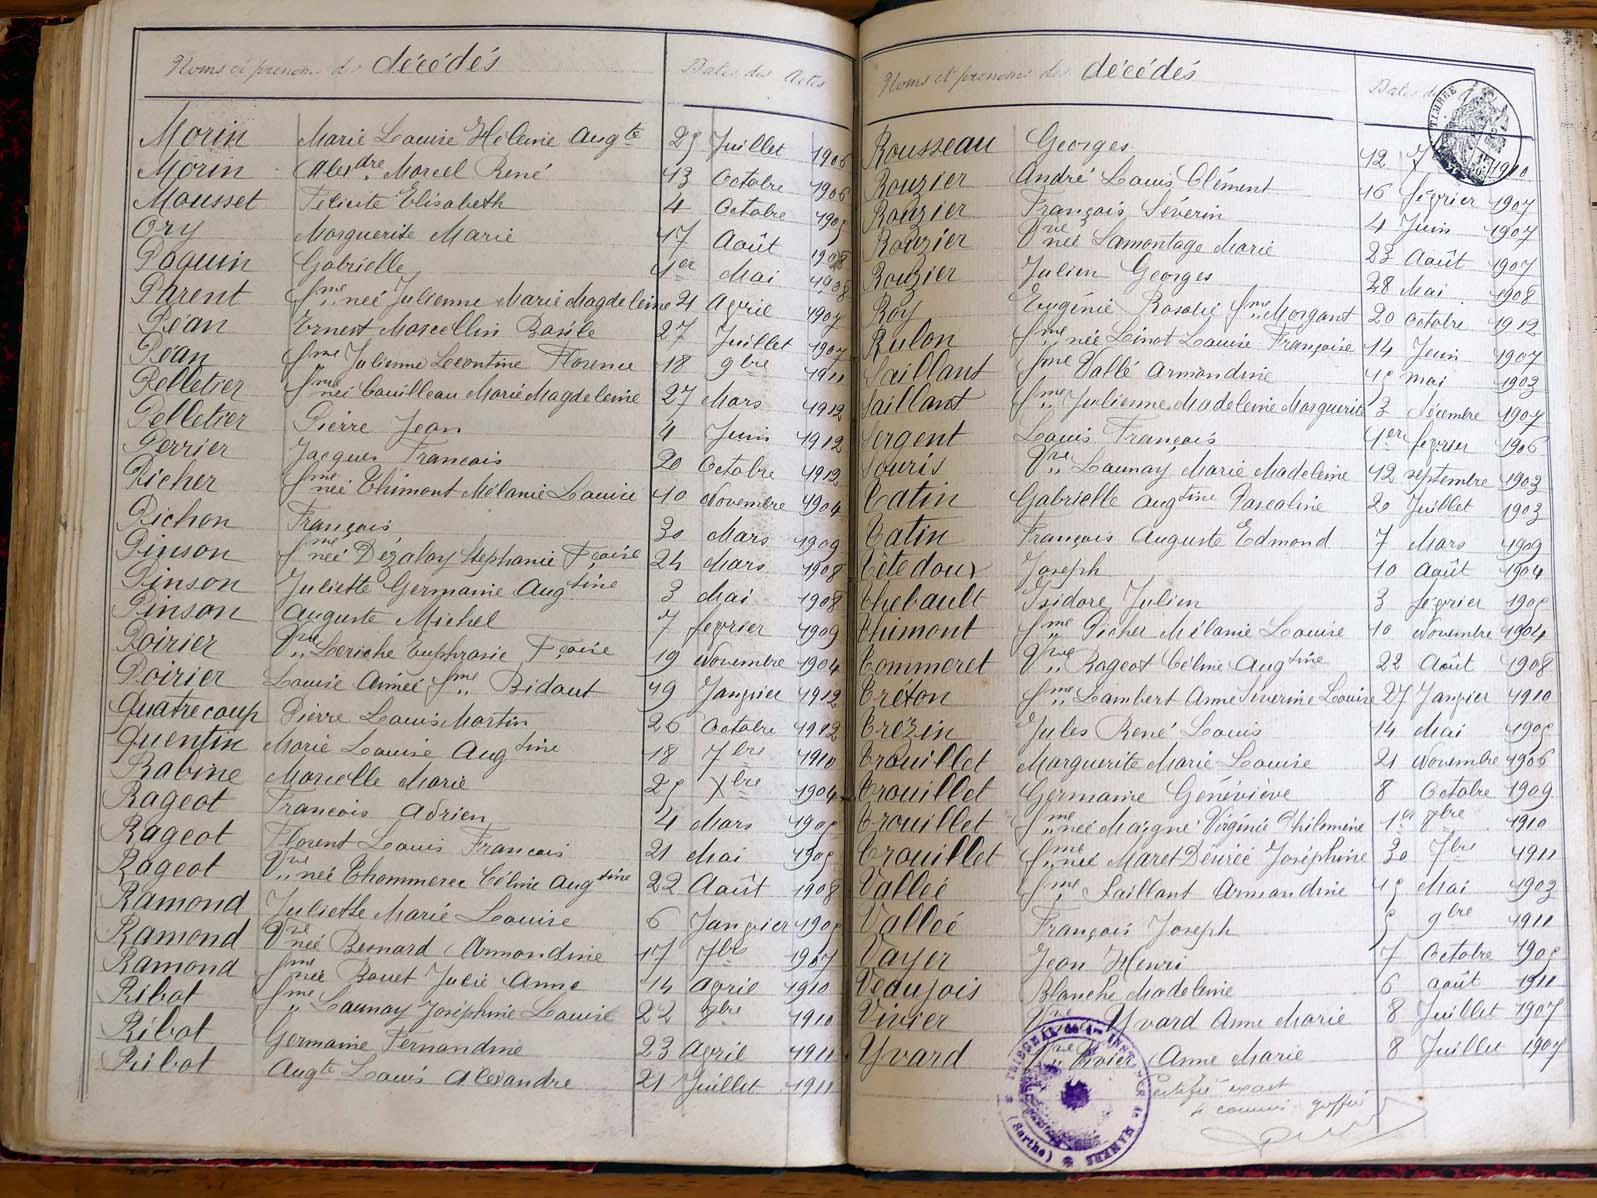 Noms et prénoms des décédés
Dates des Actes
Morin Marie Louise Helene Augte 25 Juillet 1906
Morin Alexdre Marcel René 13 Octobre 1906
Mousset Felicite Elisabeth 4 Octobre 1905
Ory Marguerite Marie 17 Août 1908
Paquin Gabrielle 1er Mai 1908
Parent fme née Julienne Marie Magdeleine 21 Avril 1907
Péan Ernest Marcellin Basile 27 Juillet 1907
Péan fme Julienne Leontine Florence 18 9bre 1911
Pelletier fme née Couilleau Marie Magdeleine 27 Mars 1912
Pelletier Pierre Jean 4 Juin 1912
Perrier Jacques Francois 20 Octobre 1912
Richer fme née Thimont Mélanie Louise 10 Novembre 1904
Pichon François 30 Mars 1909
Pinson fme née Dézalay Stephanie Fçoise 24 Mars 1908
Pinson Juliette Germaine Augtine 3 Mai 1908
Pinson Auguste Michel 7 fevrier 1909
Poirier Vve Leriche Euphrasie Fçoise 19 Novembre 1904
Poirier Louise Aimée fme Bidaut 19 Janvier 1912
Quatrecoup Pierre Louis Martin 26 Octobre 1912
Quentin Marie Louise Augtine 18 7bre 1910
Rabine Marcelle Marie 25 Xbre 1904
Rageot Francois Adrien 4 Mars 1905
Rageot Florent Louis Francois 21 Mai 1905
Rageot Vve née Thommeret Céline Augtine 22 Août 1908
Ramond Juliette Marie Louise 6 Janvier 1905
Ramond Vve née Besnard Armandine 17 7bre 1907
Ramond fme née Bouet Julie Anne 14 Avril 1910
Ribot fme " Launay Joséphine Louise 22 8bre 1910
Ribot Germaine Fernandine 23 Avril 1911
Ribot Augte Louis Alexandre 21 Juillet 1911
Noms et prénoms des décédés
Dates des
TIMBRE
Rousseau Georges 12 1910
Rouzier André Louis Clément 16 février 1907
Rouzier François Séverin 4 Juin 1907
Rouzier Vve née Lamontage Marie 23 Août 1907
Rouzier Julien Georges 28 Mai 1908
Roy Eugénie Rosalie fme Morgant 20 Octobre 1912
Rulon fme née Linot Louise Françoise 14 Juin 1907
Saillant fme Vallé Armandine 15 mai 1903
Saillant fme " Julienne Madeleine Marguerite 3 décembre 1907
Sergent Louis François 1er février 1906
Souris Vve " Launay Marie Madeleine 12 septembre 1903
Tatin Gabrielle Augtine Pascaline 20 Juillet 1903
Tatin François Auguste Edmond 7 Mars 1909
Têtedoux Joseph 10 Août 1904
Thebault Isidore Julien 3 février 1905
Thimont fme " Richer Mélanie Louise 10 Novembre 1904
Tommeret Vve " Rageot Céline Augtine 22 Août 1908
Tréton fme " Lambert Anne Séverine Louise 27 Janvier 1910
Trézin Jules René Louis 14 Mai 1905
Trouillet Marguerite Marie Louise 21 Novembre 1906
Trouillet Germaine Généviève 8 Octobre 1909
Trouillet fme " née Maigné Virginie Philomène 1er 8bre 1910
Trouillet fme " née Maret Désirée Joséphine 30 7bre 1911
Vallée fme " Saillant Armandine 15 Mai 1903
Vallée François Joseph 5 9bre 1911
Vayer Jean Henri 7 Octobre 1905
Veaujois Blanche Madeleine 6 août 1911
Vivier Vve Yvard Anne Marie 8 Juillet 1907
Yvard Vve Vivier Anne Marie 8 Juillet 1907
Certifié exact
Le commis greffier
TRIBUNAL de 1ère INST de MAMERS (Sarthe)